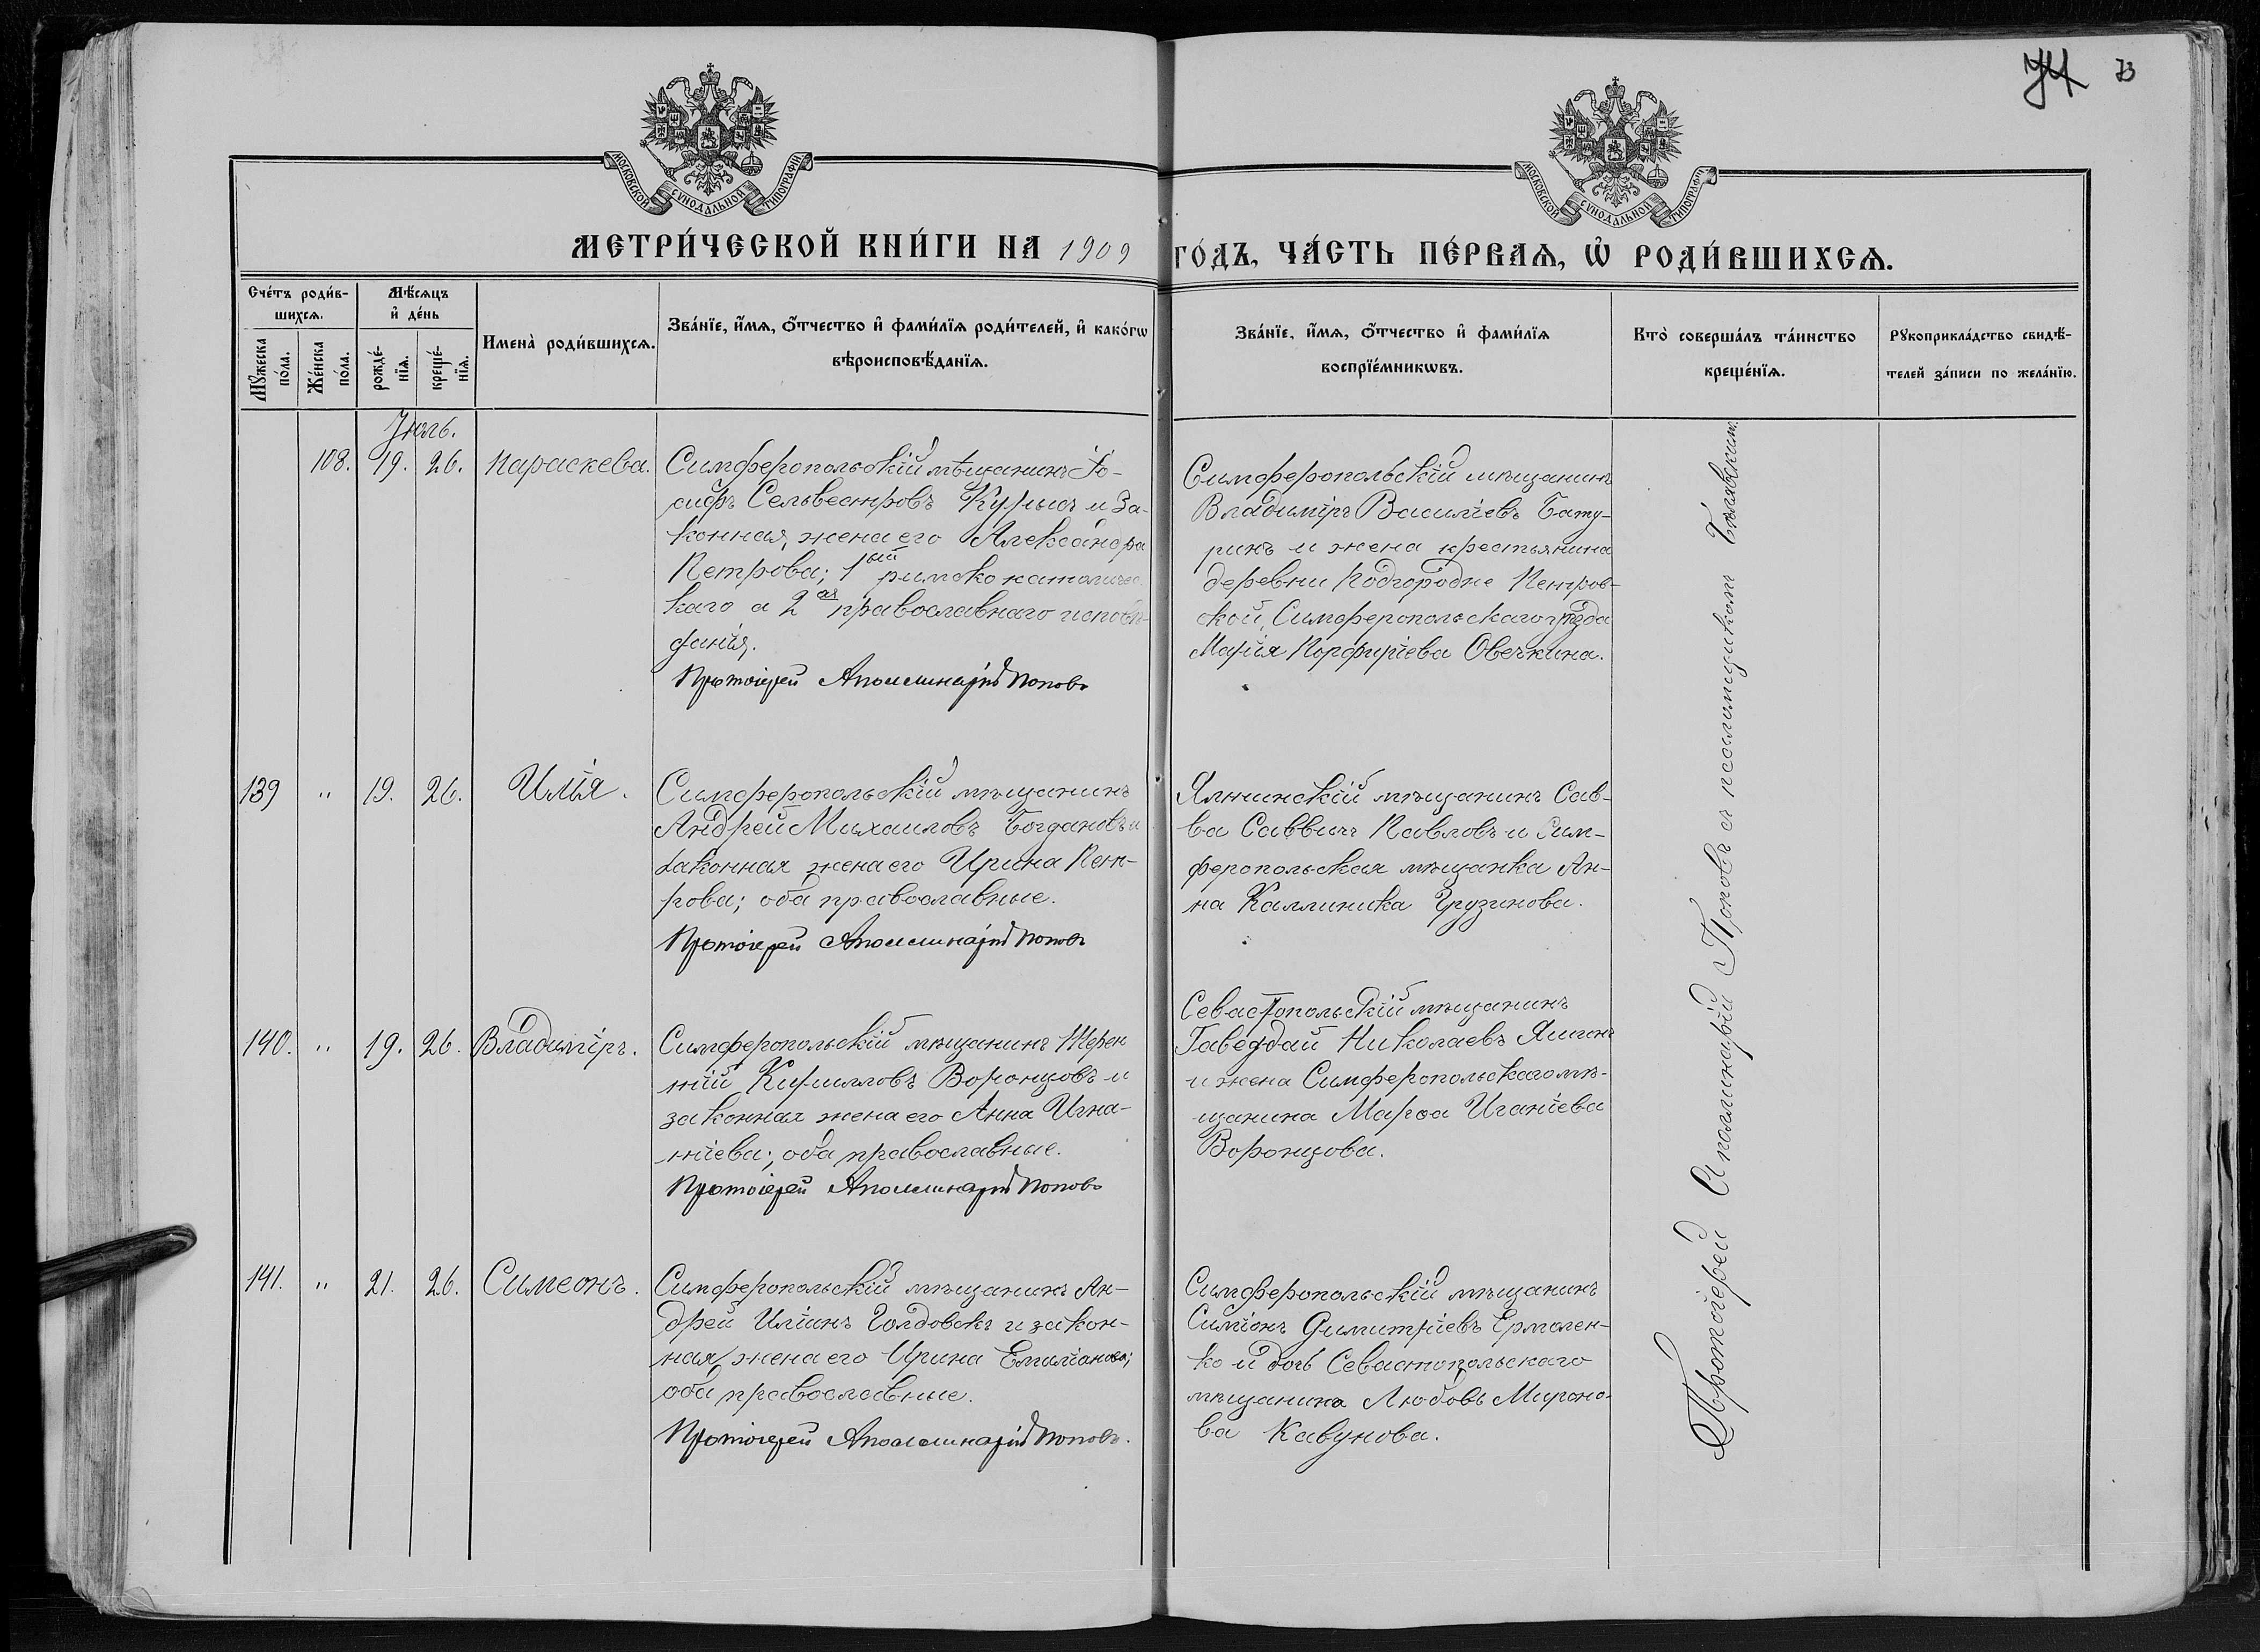 74 73
МОСКОВСКОЙ СѴНОДАЛЬНОЙ ТИПОГРАФІИ
МОСКОВСКОЙ СѴНОДАЛЬНОЙ ТИПОГРАФІИ
МЕТРИ́ЧЕСКОЙ КНИ́ГИ НА 1909 ГО́ДЪ, ЧА́СТЬ ПЕ́РВАѦ, Ѡ҆ РОДИ́ВШИХСѦ.
Сче́тъ роди́в-
шихсѧ.
Мꙋ́жеска по́ла.
Же́нска по́ла.
Мѣ́сѧцъ
и҆ де́нь
рожде́-
нїѧ.
креще́-
нїѧ.
Имена̀ роди́вшихсѧ.
Зва́нїе, и҆́мѧ, ѻ҆́тчество и҆ фами́лїѧ роди́телей, и҆ како́гѡ
вѣроисповѣ́данїѧ.
Зва́нїе, и҆́мѧ, ѻ҆́тчество и҆ фами́лїѧ
воспрїе́мникѡвъ.
Кто̀ соверша́лъ та́инство
креще́нїѧ.
Рꙋкоприкла́дство свидѣ́-
телей за́писи по жела́нїю.
Іюль.
108. 19. 26. Параскева.
Симферопольскій мѣщанинъ Іо-
сифъ Сельвестровъ Курысъ и за-
конная жена его Александра
Петрова; 1ый римско католичес
каго а 2ая православнаго исповѣ-
данія.
Протоіерей Аполлинарій Поповъ
Симферопольскій мѣщанинъ
Владиміръ Василіевъ Бату-
ринъ и жена крестьянина
деревни Подгородне Петров-
ской, Симферопольскаго уѣзда
Марія Порфиріева Овечкина.
139 " 19. 26. Илія.
Симферопольскій мѣщанинъ
Андрей Михаиловъ Богдановъ и
законная жена его Ирина Пет-
рова; оба православные.
Протоіерей Аполлинарій Поповъ
Ялтинскій мѣщанинъ Сав-
ва Саввичъ Павловъ и Сим-
феропольская мѣщанка Ан-
на Каллиника Грузинова.
140. " 19. 26. Владиміръ.
Симферопольскій мѣщанинъ Терен
тій Кирилловъ Воронцовъ и
законная жена его Анна Игна-
тіева; оба православные.
Протоіерей Аполлинарій Поповъ
Севастопольскій мѣщанинъ
Николаевъ
и жена Симферопольскаго мѣ-
щанина Марѳа Иганіева
Воронцова.
141. " 21. 26. Симеонъ.
Симферопольскій мѣщанинъ Ан-
дрей Иліинъ и закон-
ная жена его Ирина Емиліанова;
оба православные.
Протоіерей Аполлинарій Поповъ.
Симферопольскій мѣщанинъ
Симіонъ Димитріевъ Ермолен-
ко и дочь Севастопольскаго
мѣщанина Любовь Мироно-
ва Кавунова.
Протоіерей Аполлинарій Поповъ съ псаломщикомъ